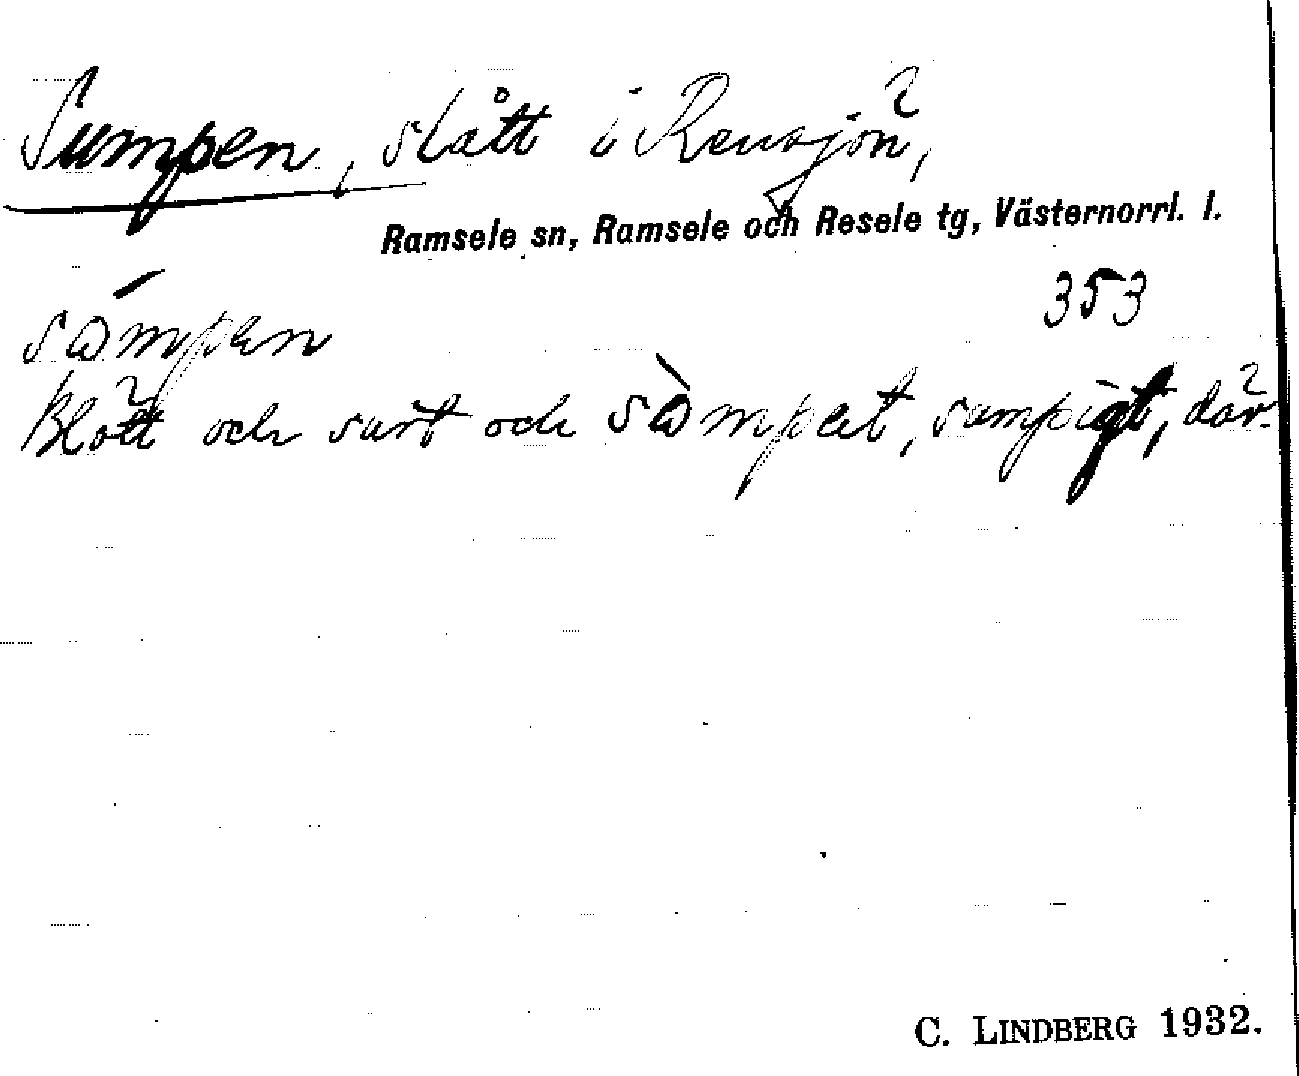 Sumpen, slått i Rensjön,
Ramsele sn, Ramsele och Resele tg, Västernorrl. l.
353
sómpen
Blött och surt och sòmpet, sumpigt, där.
C. LINDBERG 1932.